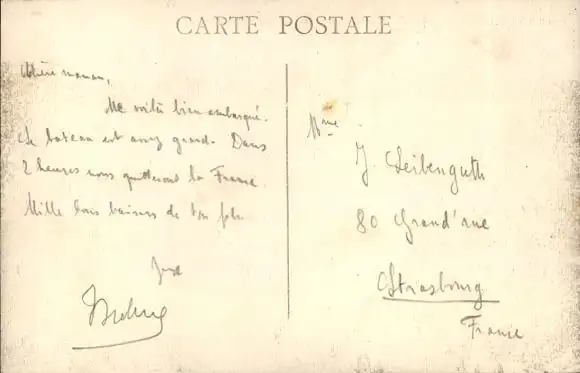 CARTE POSTALE
Chère maman,
Me voilà bien embarqué.
Le bateau est assez grand. Dans
2 heures nous quitterons la France
Mille bons baisers de ton fils
Mme
J. Leibenguth
80 Grand'rue
Strasbourg
France